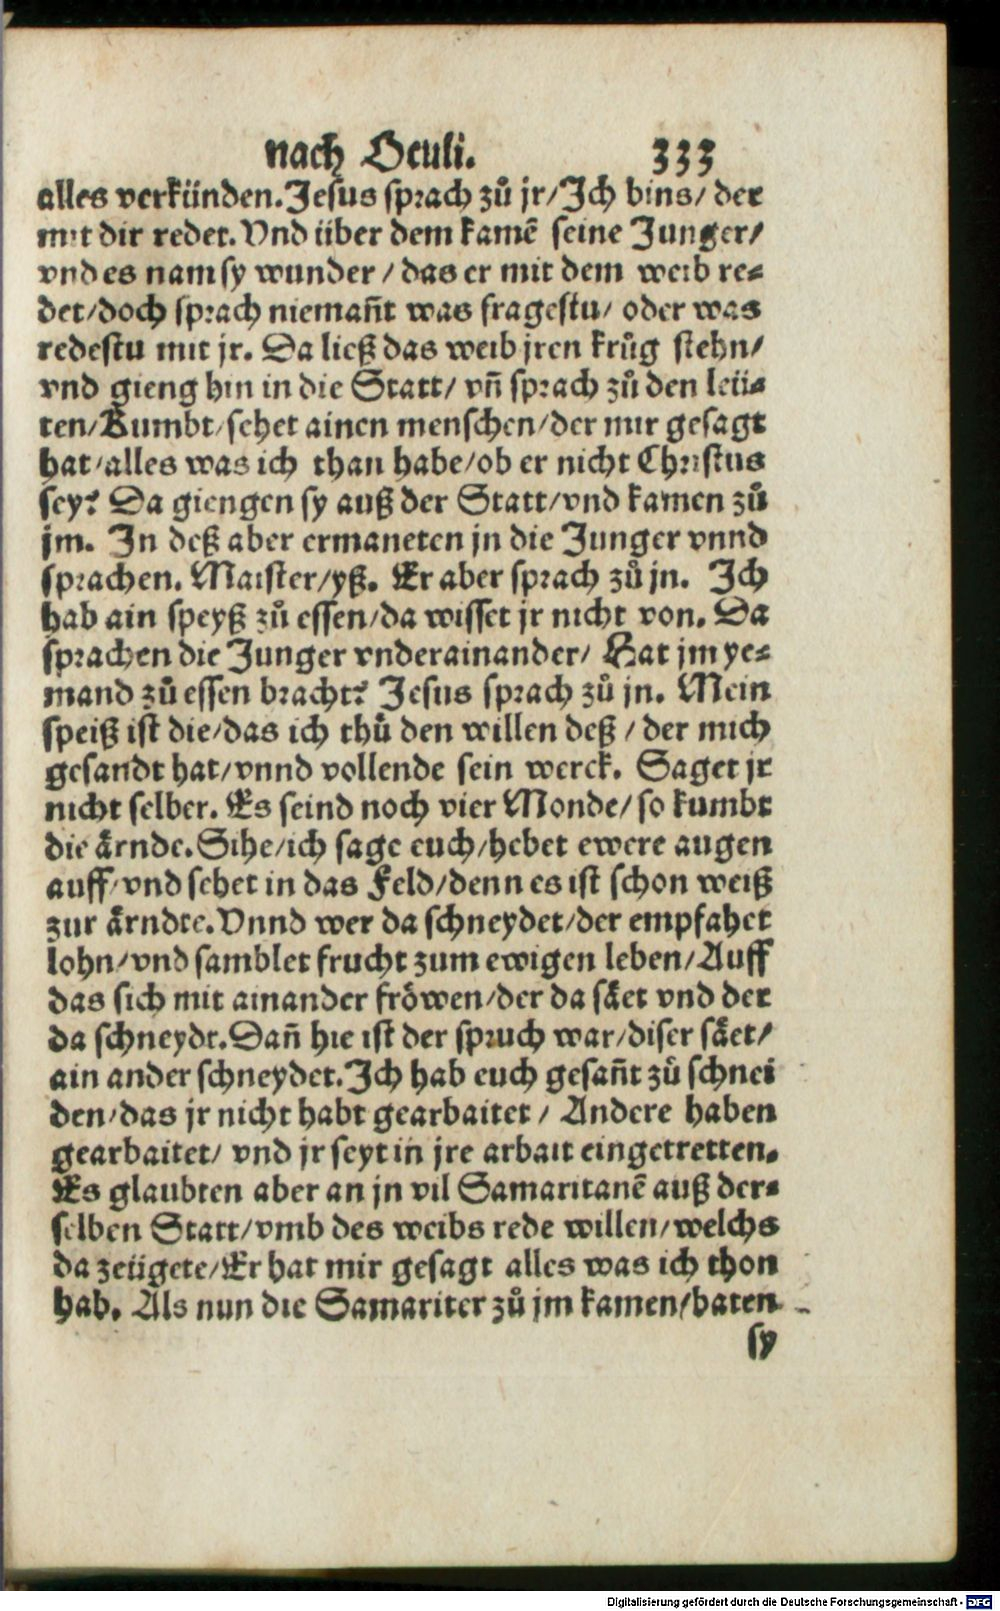 nach Oculi. 333
alles verkünden. Jesus sprach zů jr/ Ich bins/ der
mit dir redet. Vnd über dem kamē seine Junger/
vnd es nam sy wunder / das er mit dem weib re⸗
det/ doch sprach niemañt was fragestu/ oder was
redestu mit jr. Da ließ das weib jren krůg stehn/
vnd gieng hin in die Statt/ vñ sprach zů den leü⸗
ten/ Kumbt/ sehet ainen menschen/ der mir gesagt
hat/ alles was ich than habe/ ob er nicht Christus
sey? Da giengen sy auß der Statt/ vnd kamen zů
jm. In deß aber ermaneten jn die Junger vnnd
sprachen. Maister/ yß. Er aber sprach zů jn. Ich
hab ain speyß zů essen/ da wisset jr nicht von. Da
sprachen die Junger vnderainander/ Hat jm ye⸗
mand zů essen bracht? Jesus sprach zů jn. Mein
speiß ist die/ das ich thů den willen deß / der mich
gesandt hat/ vnnd vollende sein werck. Saget jr
nicht selber. Es seind noch vier Monde/ so kumbt
die ärnde. Sihe/ ich sage euch/ hebet ewere augen
auff/ vnd sehet in das Feld/ denn es ist schon weiß
zur ärndte. Vnnd wer da schneydet/ der empfahet
lohn/ vnd samblet frucht zum ewigen leben/ Auff
das sich mit ainander fröwen/ der da säet vnd der
da schneydt. Dañ hie ist der spruch war/ diser säet/
ain ander schneydet. Ich hab euch gesañt zů schnei
den/ das jr nicht habt gearbaitet / Andere haben
gearbaitet/ vnd jr seyt in jre arbait eingetretten.
Es glaubten aber an jn vil Samaritanē auß der⸗
selben Statt/ vmb des weibs rede willen/ welchs
da zeügete/ Er hat mir gesagt alles was ich thon
hab. Als nun die Samariter zů jm kamen/ baten
sy
Digitalisierung gefördert durch die Deutsche Forschungsgemeinschaft - DFG